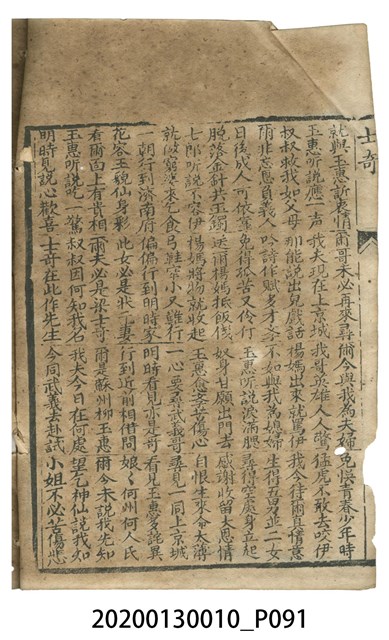 士奇
就與玉惠訴衷情 爾哥未必再來尋 爾今與我為夫婦 免悞青春少年時
玉惠听說應一声 我夫現在上京城 我哥英雄人人驚 猛虎不敢去咬伊
叔叔救我如父母 那能說出兒戲話 楊媽出來就罵伊 我今待爾真情意
爾非忘恩負義人 吟詩作賦多才 不如與我為媳婦 生得一男並二女
日後成人可依靠 免得孤苦又伶仃 玉惠听說淚滿腮 尋得空處身立起
脫落金針共玉鐲 送爾楊媽抵飯 奴身甘願出門去 感謝收留大恩情
七郎听說不容伊 楊媽將物就收起 玉惠苦傷心 自恨生來命太薄
就做窮婆來乞食 弓鞋窄小又難行 一心要尋武義哥 尋見一同上京城
一朝行到濟南府 偏偏行到明時家 明時看見亦是奇 看見玉惠多詫異
花容玉貌仙身彩 此女必是狀妻 行到近前相借問 娘々何州何人氏
看爾面上有貴相 爾夫必是梁士奇 爾是蘇州柳玉惠 爾今未說我先知
玉惠听說吃一驚 叔叔因何知我名 我夫今日在何處 望乞神仙說我知
明時見說心歡喜 士奇在此作先生 今同武義去赴試 小姐不必苦傷悲
20200130010_P091